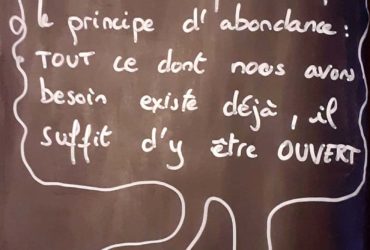 le principe d'abondance :
TOUT ce dont nous avons
besoin existe déjà, il
suffit d'y être OUVERT